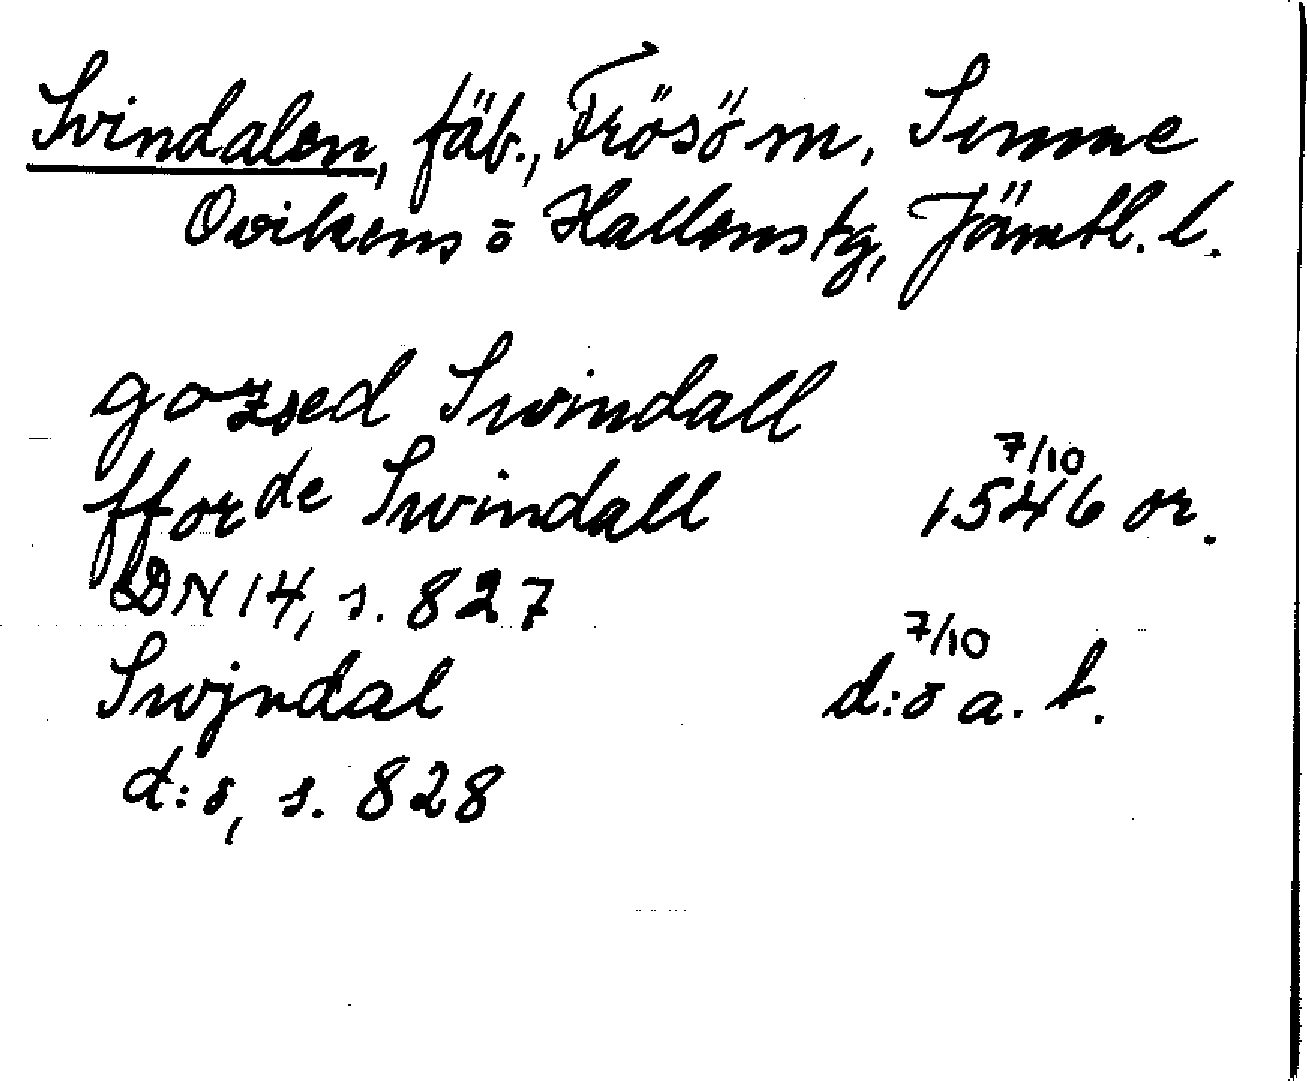 Svindalen, fäb., Frösö m, Sunne
Ovikens o Hallens tg, Jämtl. l.
gozsed Swindall
fforde Swindall 7/10 1546 or.
DN 14, s. 827
Swjndal 7/10 d:o a. f.
d:o, s. 828